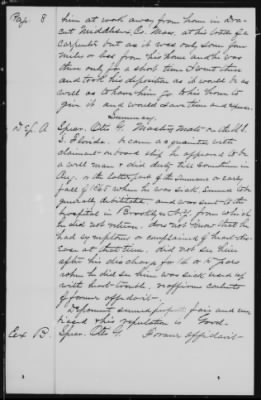 Page 8 him at work away from home in Dra-
cut Middlesex Co. Mass. at his trade of a
carpenter but as it was only some four
miles or less from his home and he was
there only for a short time I went there
and took his deposition as it would be as
well as to have him go to his home to
give it and would save time and expense.
Summary.
Dep. A Spear, Otis G. Masters mate on the U.S.
S. Florida. became acquainted with
claimant on board ship he appeared to be
a well man & did duty till sometime in
Aug. or the latter part of the Summer or early
fall of 1865 when he was sick, seemed to be
generally debilitated, and was sent to the
hospital in Brooklyn N.Y. from which
he did not return. does not know that he
had symptoms or complained of heart dis-
ease at that time, did not see him
after his discharge for 14 or 15 years
when he did see him was sick used up
with heart trouble. reaffirms contents
of former affidavit.
Deponent seemed fair and un
biased & his reputation is Good.
Ex. B. Spear, Otis G. Former affidavit